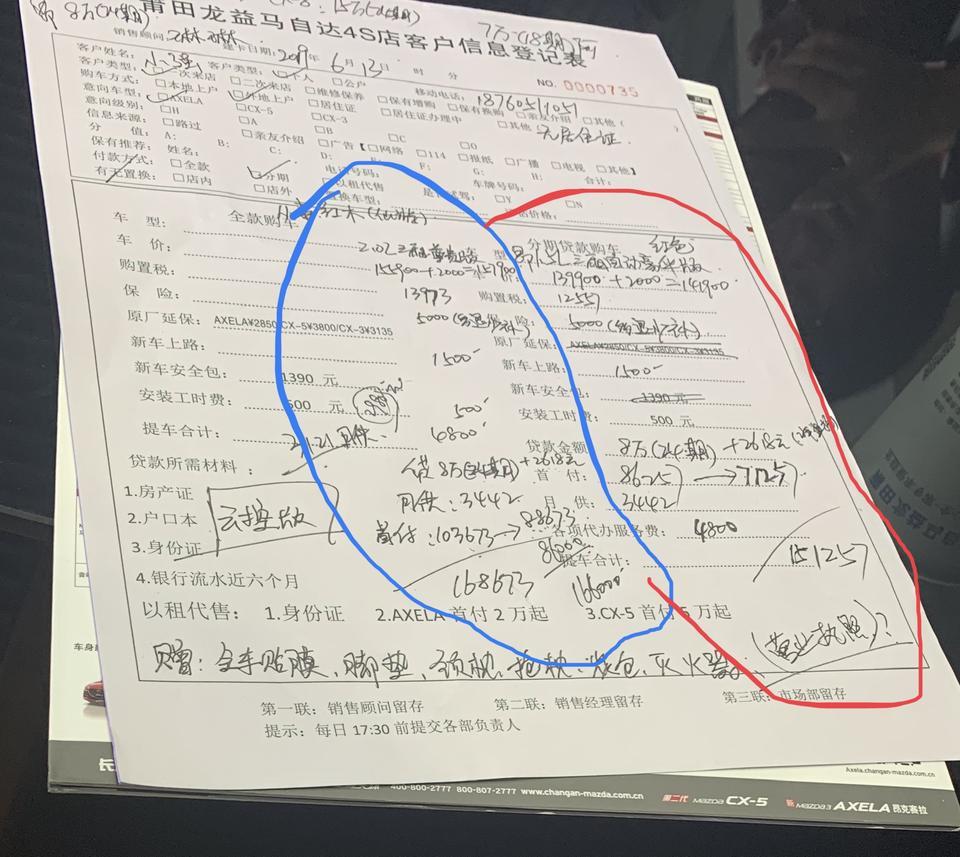 8万(24期)
15万(24期)
7万(18期)
莆田龙益马自达4S店客户信息登记表
销售顾问: 建卡日期: 2019年6月13日 时 分
NO. 0000735
客户姓名: 小 客户类型: □个人 □公户 移动电话: 18760511051
客户类型: 一次来店 □二次来店 □维修保养 □保有增购 □保有换购 □亲友介绍 □其他( )
购车方式: □本地上户 □外地上户 □居住证 □居住证办理中 □其他 无居住证
意向车型: □AXELA □CX-5 □CX-3
意向级别: □H □A □B □C □O
信息来源: □路过 □亲友介绍 □广告【□网络 □114 □报纸 □广播 □电视 □其他】
分 值: A: B: C: D: E: F: G: H: 合计:
保有推荐: 姓名: 电话号码: 车牌号码:
付款方式: □全款 □分期 □以租代售 □Y □N
有无置换: □店内 □店外 置换车型:
全款购车
分期贷款购车 红色
车 型: 2.0L三厢
车 价: 155900+2000=157900 139900+2000=141900
购置税: 13973 购置税: 12557
保 险: 5000 保 险: 5000
原厂延保: AXELA¥2850/CX-5¥3800/CX-3¥3135 原厂延保: AXELA¥2850/CX-5¥3800/CX-3¥3135
新车上路: 1500 新车上路: 1500
新车安全包: 1390 元 新车安全包: 1390 元
安装工时费: 500 元 500 安装工时费: 500 元
提车合计: 6800 贷款金额: 8万(24期)+2618元
贷款所需材料: 贷8万(24期)+2618元 首 付: 86257→71257
1.房产证 月供:3442 月 供: 3442
2.户口本 首付:103673→88673 各项代办服务费: 4800
3.身份证 86000 提车合计: 151257
4.银行流水近六个月 168673 166000
以租代售: 1.身份证 2.AXELA 首付 2 万起 3.CX-5 首付 5 万起
(营业执照)?
贝曾: 全车贴膜、脚垫、颈枕、抱枕、灭火器
第一联: 销售顾问留存 第二联: 销售经理留存 第三联: 市场部留存
提示: 每日 17:30 前提交各部负责人
车身
Axela.changan-mazda.com.cn
长
400-800-2777 800-807-2777 www.changan-mazda.com.cn
第二代 mazda CX-5 新 mazda3 AXELA 昂克赛拉